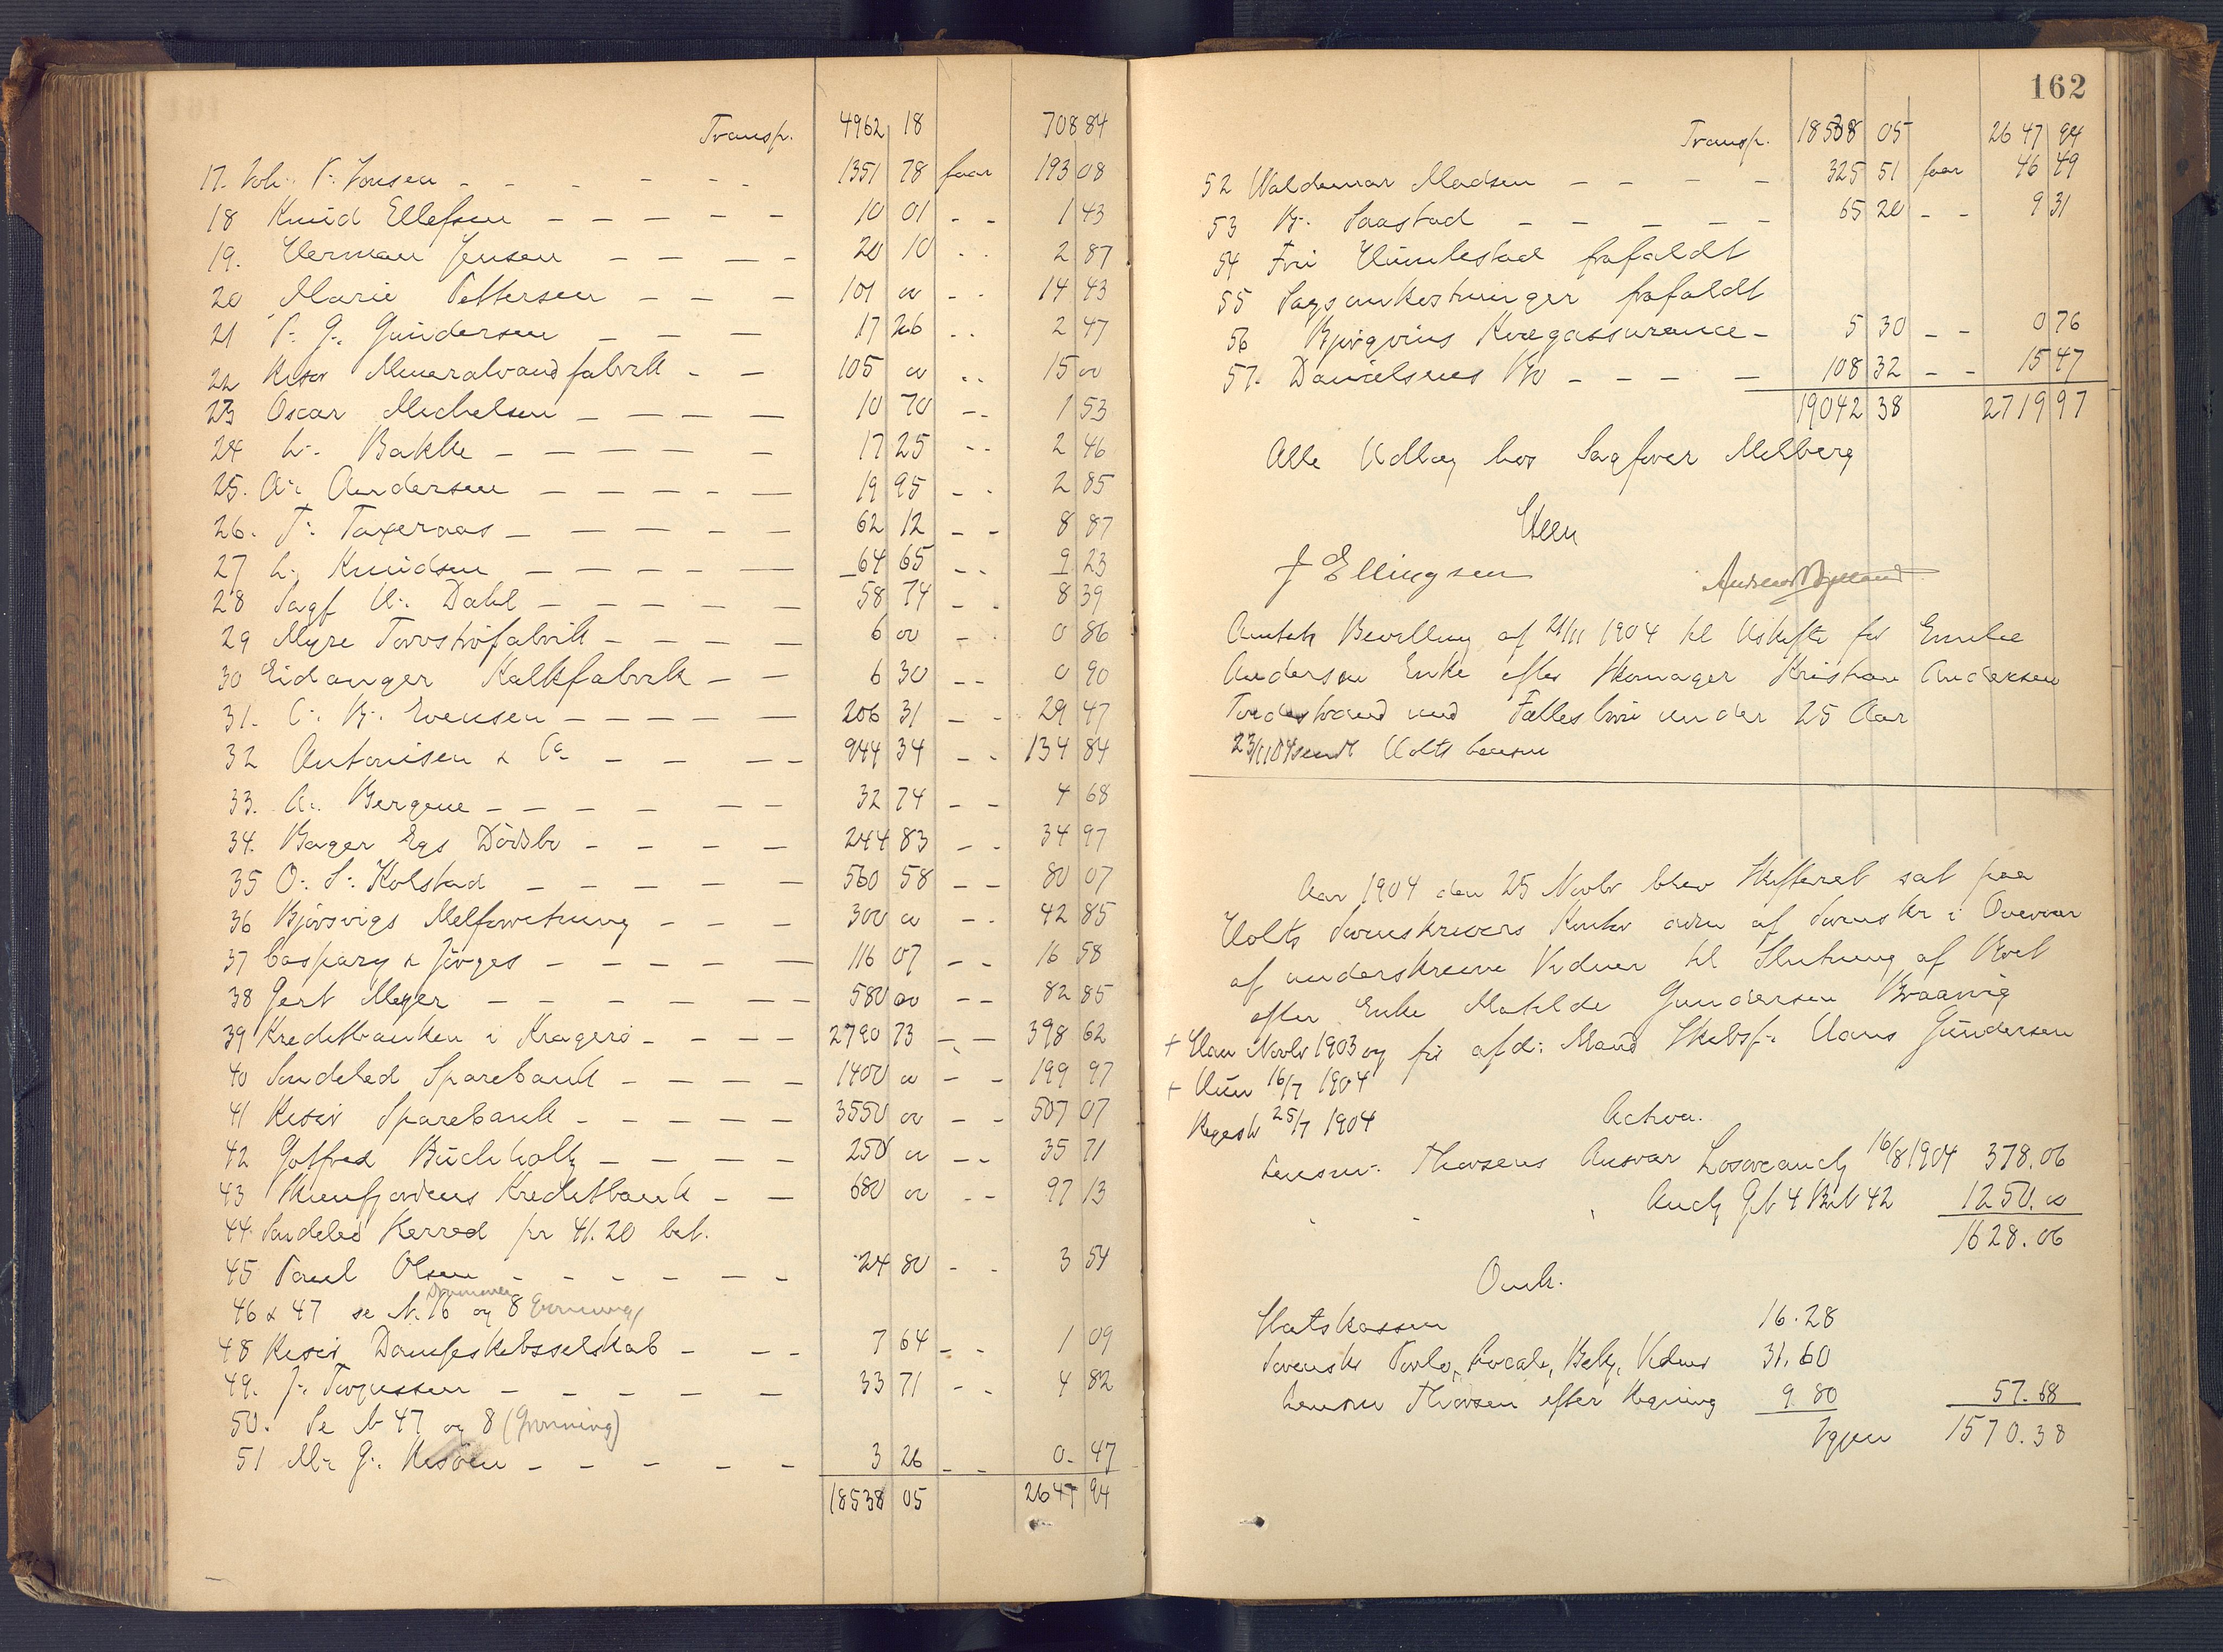 Transp. 4962 18 708 84
17. Joh. P. Jonsen - - - - - - 1351 78 faar 193 08
18 Knud Ellefsen - - - - - 10 01 - - 1 43
19. Herman Jensen - - - - 20 10 - - 2 87
20 Marie Pettersen - - - 101 00 - - 14 43
21 P. G. Gundersen - - - 17 26 - - 2 47
22 Risør Mineralvandfabrik - - 105 00 - - 15 00
23 Oscar Michelsen - - - - 10 70 - - 1 53
24 L. Bakke - - - - - 17 25 - - 2 46
25. A. Andersen - - - - - 19 95 - - 2 85
26. T. - - - - - 62 12 - - 8 87
27 L. Knudsen - - - - - 64 65 - - 9 23
28 Sagf. H. Dahl - - - - - 58 74 - - 8 39
29 Myre Torvstrøfabrik - - - - 6 00 - - 0 86
30 Eidanger Kalkfabrik - - 6 30 - - 0 90
31. C. B. Evensen - - - - - 206 31 - - 29 47
32 Antonisen & Co - - - - 944 34 - - 134 84
33. A. Bergene - - - - - - 32 74 - - 4 68
34. Bager Egs Dødsbo - - - - 244 83 - - 34 97
35 O. S. Kolstad - - - - - 560 58 - - 80 07
36 Bjørsvigs Melforretning - - - 300 00 - - 42 85
37 Caspary & Jørges - - - - - 116 07 - - 16 58
38 Gert Meyer - - - - - - 580 00 - - 82 85
39 Kreditbanken i Kragerø - - - - 2790 73 - - 398 62
40 Søndeled Sparebank - - - - 1400 00 - - 199 97
41 Risør Sparebank - - - - - 3550 00 - - 507 07
42 Gotfred Buchholtz - - - - 250 00 - - 35 71
43 Skiensfjordens Kreditbank - - 680 00 - - 97 13
44. Søndeled Herred pr 41.20 bet.
45 Paul Olsen - - - - - - 24 80 - - 3 54
46 & 47 se N. 16 og 8
48 Risør Dampskibsselskab - - - 7 64 - - 1 09
49. J. Torjussen - - - - - 33 71 - - 4 82
50. Se N 47 og 8 (Grønning)
51 M. G. - - - - - 3 26 - - 0. 47
18538 05 2647 94
162
Transp. 18538 05 2647 94
52 Waldemar Madsen - - - - 325 51 faar 46 49
53 B. Saastad - - - - - 65 20 - - 9 31
54 Fru Humlestad frafaldt
55 Sagsomkostninger frafaldt
56 Bjorgvins Kvegassurance - 5 30 - - 0 76
57. Danielsens Bo - - - - 108 32 - - 15 47
19042 38 2719 97
Alle Udlæg hos Sagfører Melberg
Steen
J Ellingsen
Amtets Bevilling af 21/11 1904 til Uskifte for Emilie
Andersen Enke efter Skomager Kristian Andersen
Tvedestrand med Fællesbørn under 25 Aar
23/11 04 sendt Holts
Aar 1904 den 25 Novbr blev Skifteret sat paa
Holts Sorenskrivers Kontor af Sorenskr i Overvær
af underskrevne Vidner til Slutning af Boet
efter Enke Matilde Gundersen Braavig
+ Han Novbr 1903 og før afd. Mand Skibsf. Hans Gundersen
+ Hun 16/7 1904
Registr 25/7 1904
Activa.
Lensm. Thorsens Ansvar Løsøreauct 16/8 1904 378.06
" - , Auct Gb 4 Bnr 42 1250.00
1628.06
Omk.
Statskassen 16.28
Sorenskr Porto, Locale, Bekj, Vidner 31.60
Lensm Thorsen efter Regning 9 80 57.68
Igjen 1570.38